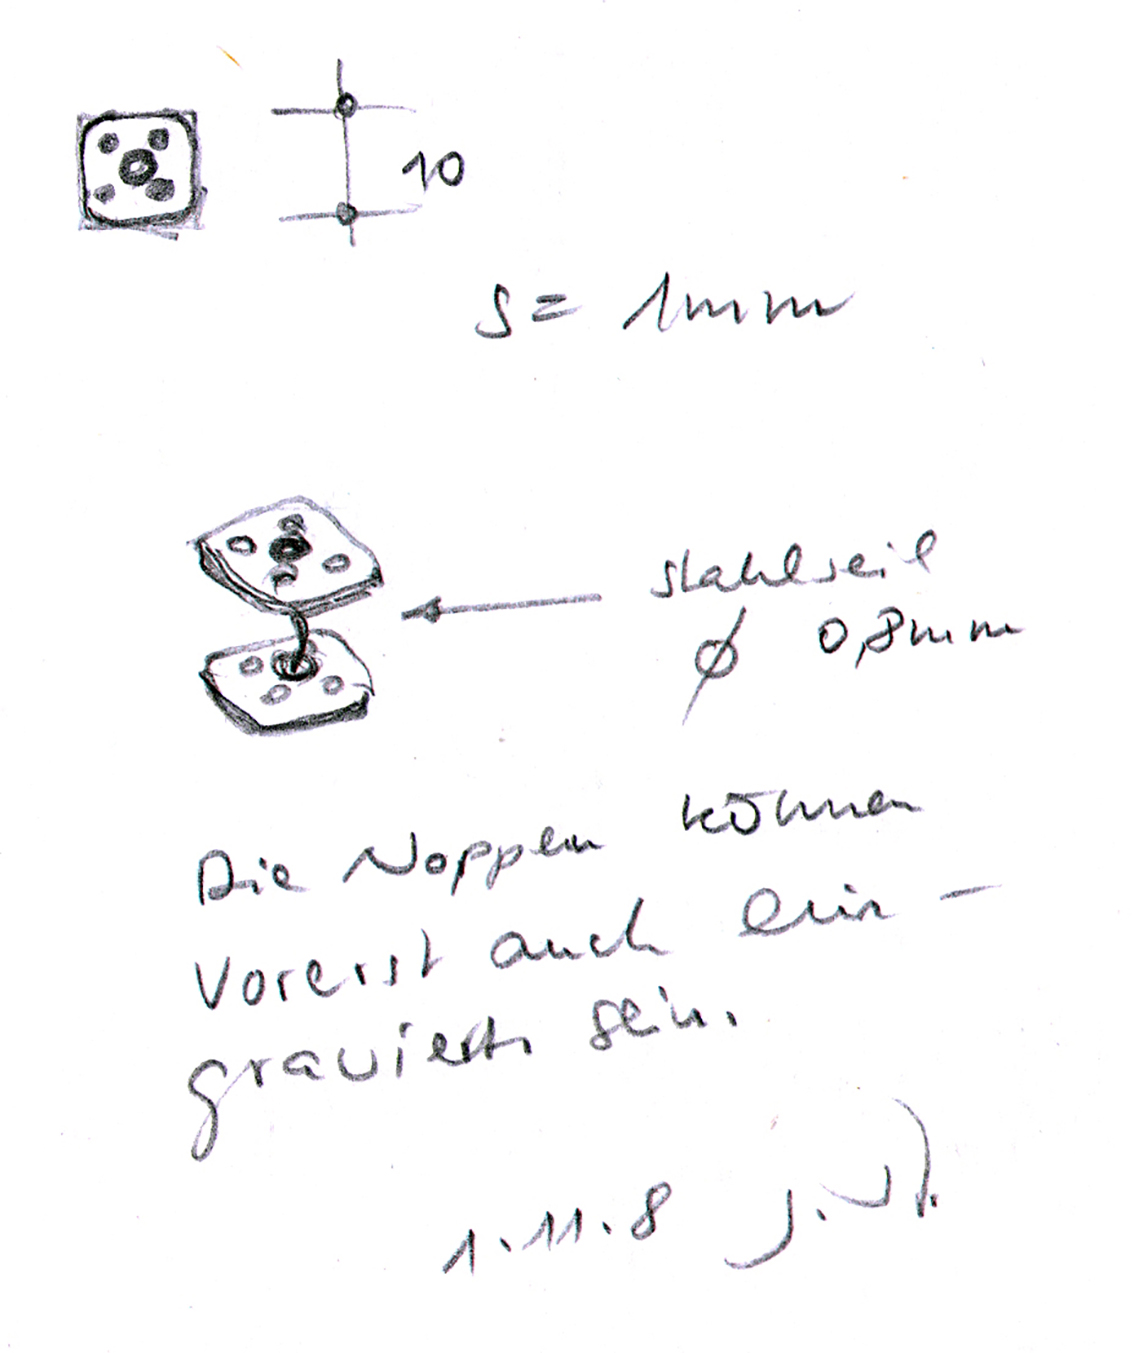 10
s = 1mm
Stahlseil
ø 0,8mm
Die Noppen können
vorerst auch ein-
graviert sein.
1.11.8 J.